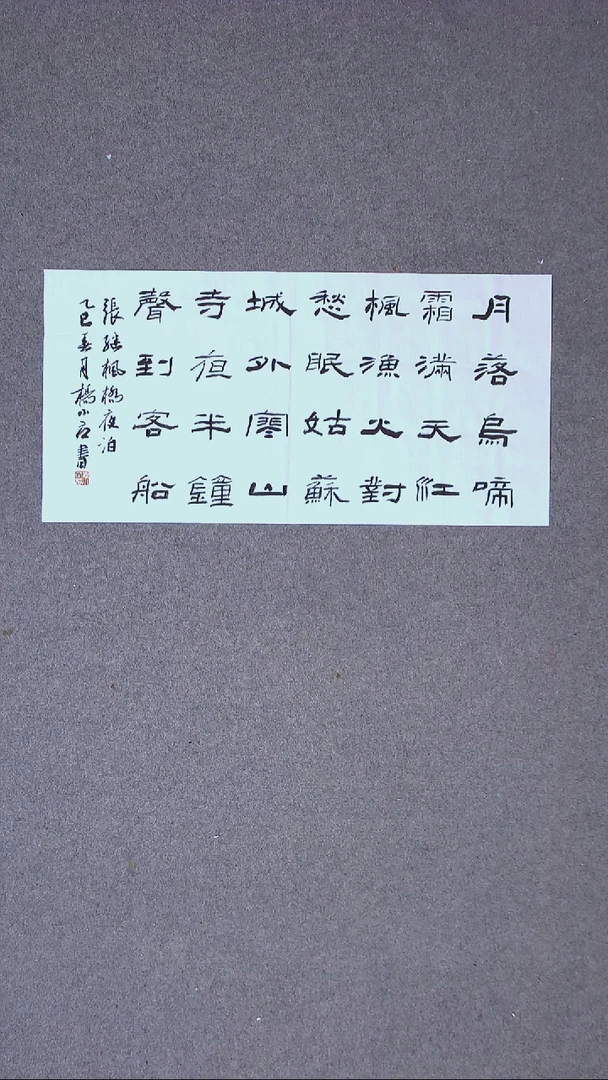 月落烏啼
霜滿天江
楓漁火對
愁眠姑蘇
城外寒山
寺夜半鐘
聲到客船
張繼楓橋夜泊
乙巳夏月橋小石書